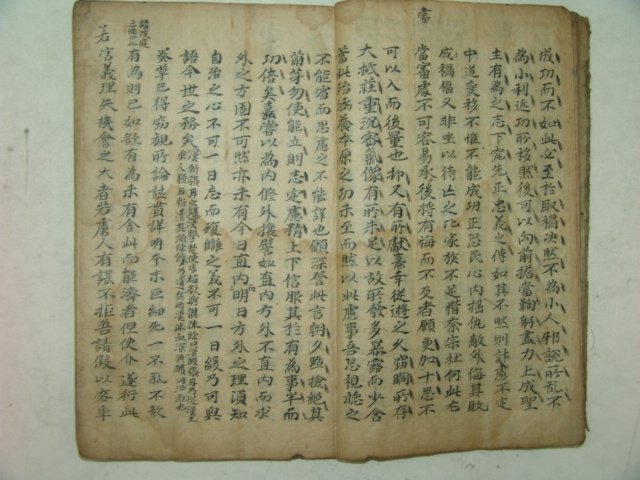 成功而不如此必至於取禍決然不為小人邪說所乱不
為小利近功所移然後可以向前擔當鞠躬盡力上成聖
主有為之志下究先正忠義之傳如其不然則計慮不定
中道變移不惟不能成功正恐民心内搖仇敵外侮其敗
成禍福又非坐以待亡之比家族不足惜奈宗社何此尤
當審處不可容易承後將有悔而不及者願更加十思不
可以入而後量也抑又有所獻嘉幸從遊之久竊覸所存
大抵莊重沉密氣像有所未足以故所發多暴露而少含
蓄此殆涵養本原之功未至而然以此慮事吾恐視聽之
不能審而思慮之不能詳也願深警此言朝夕點檢絕其
萌芽勿使能立則志定慮精上下信服其於有為事半而
功倍矣嘉嘗以為内修外攘譬如直内方外不直内而求
外之方固不可然亦未有今日直内明日方外之理須知
自治之心不可一日忘而復雖之義不可一日緩乃可與
語今世之務矣
奏草已得竊觀所論該貫詳明本末巨細无一不乱不欺
有為則已如欲有為未有舍此而能濟者但使介遂行此
若害義理失機會之大者若虜人有謀不拒吾請假以容車
當